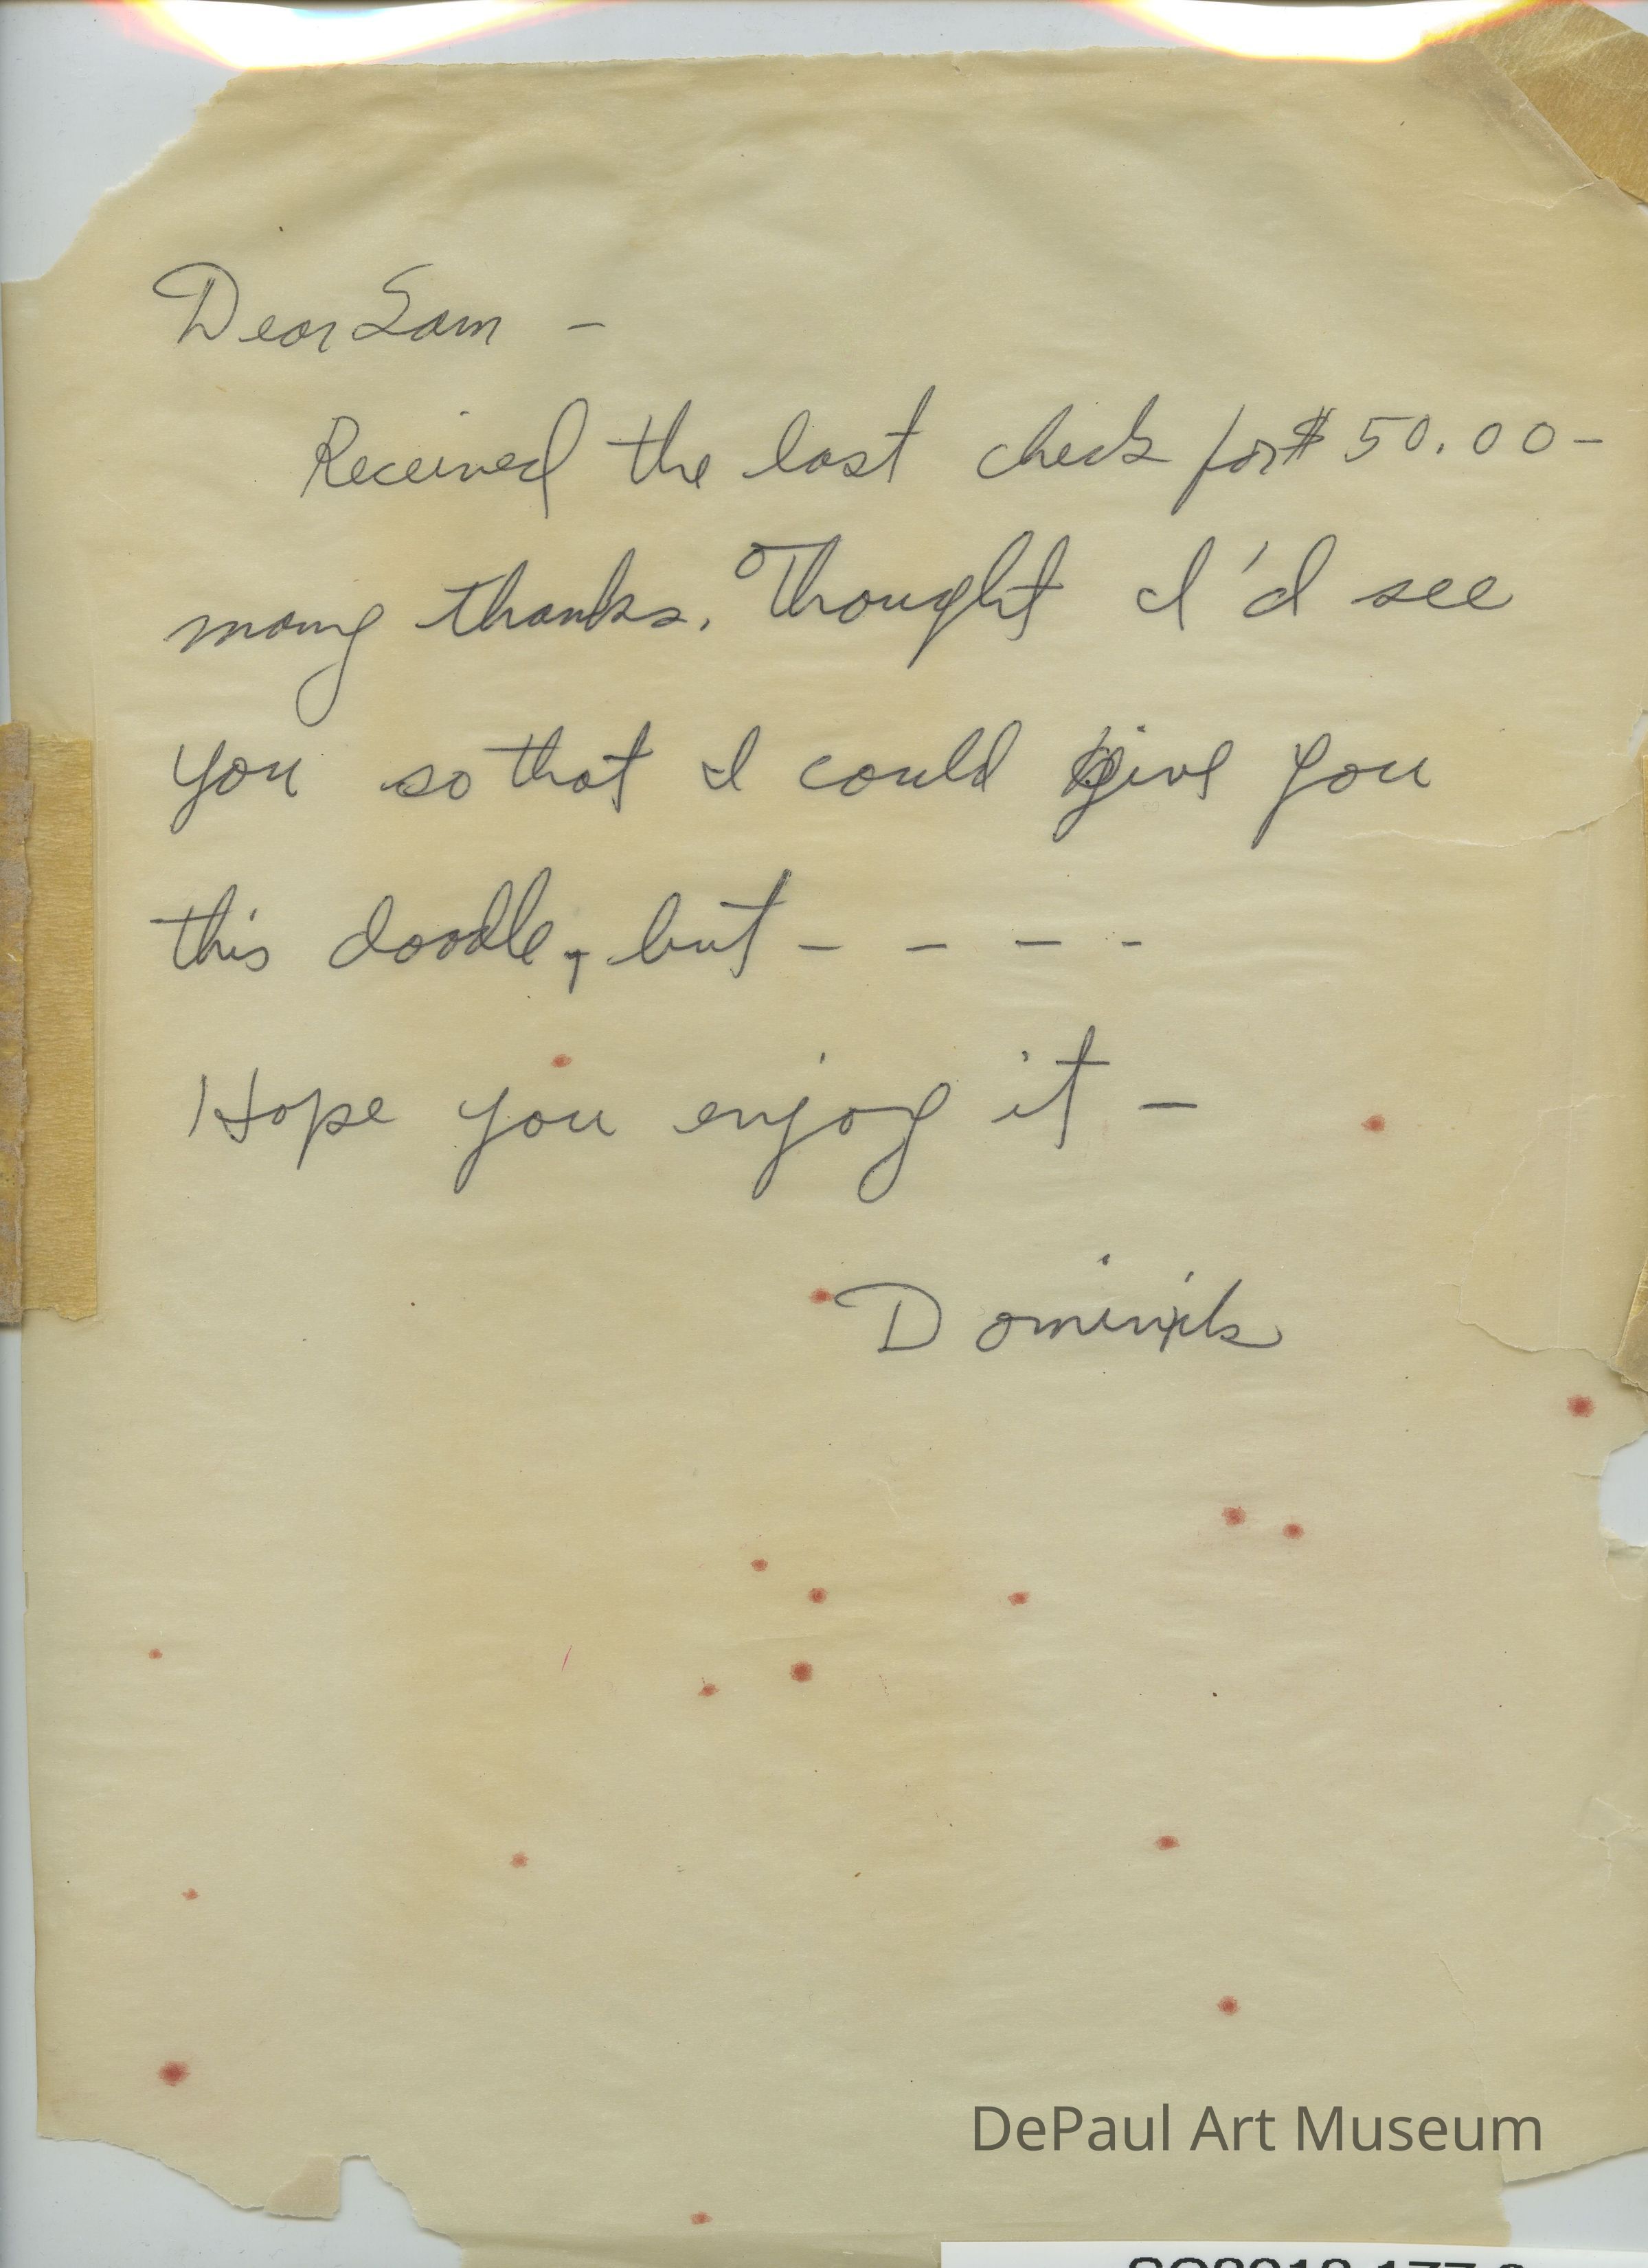 Dear Sam -
Received the last check for $50.00-
many thanks. Thought I'd see
you so that I could give you
this doodle, but - - - -
Hope you enjoy it -
Dominik
DePaul Art Museum